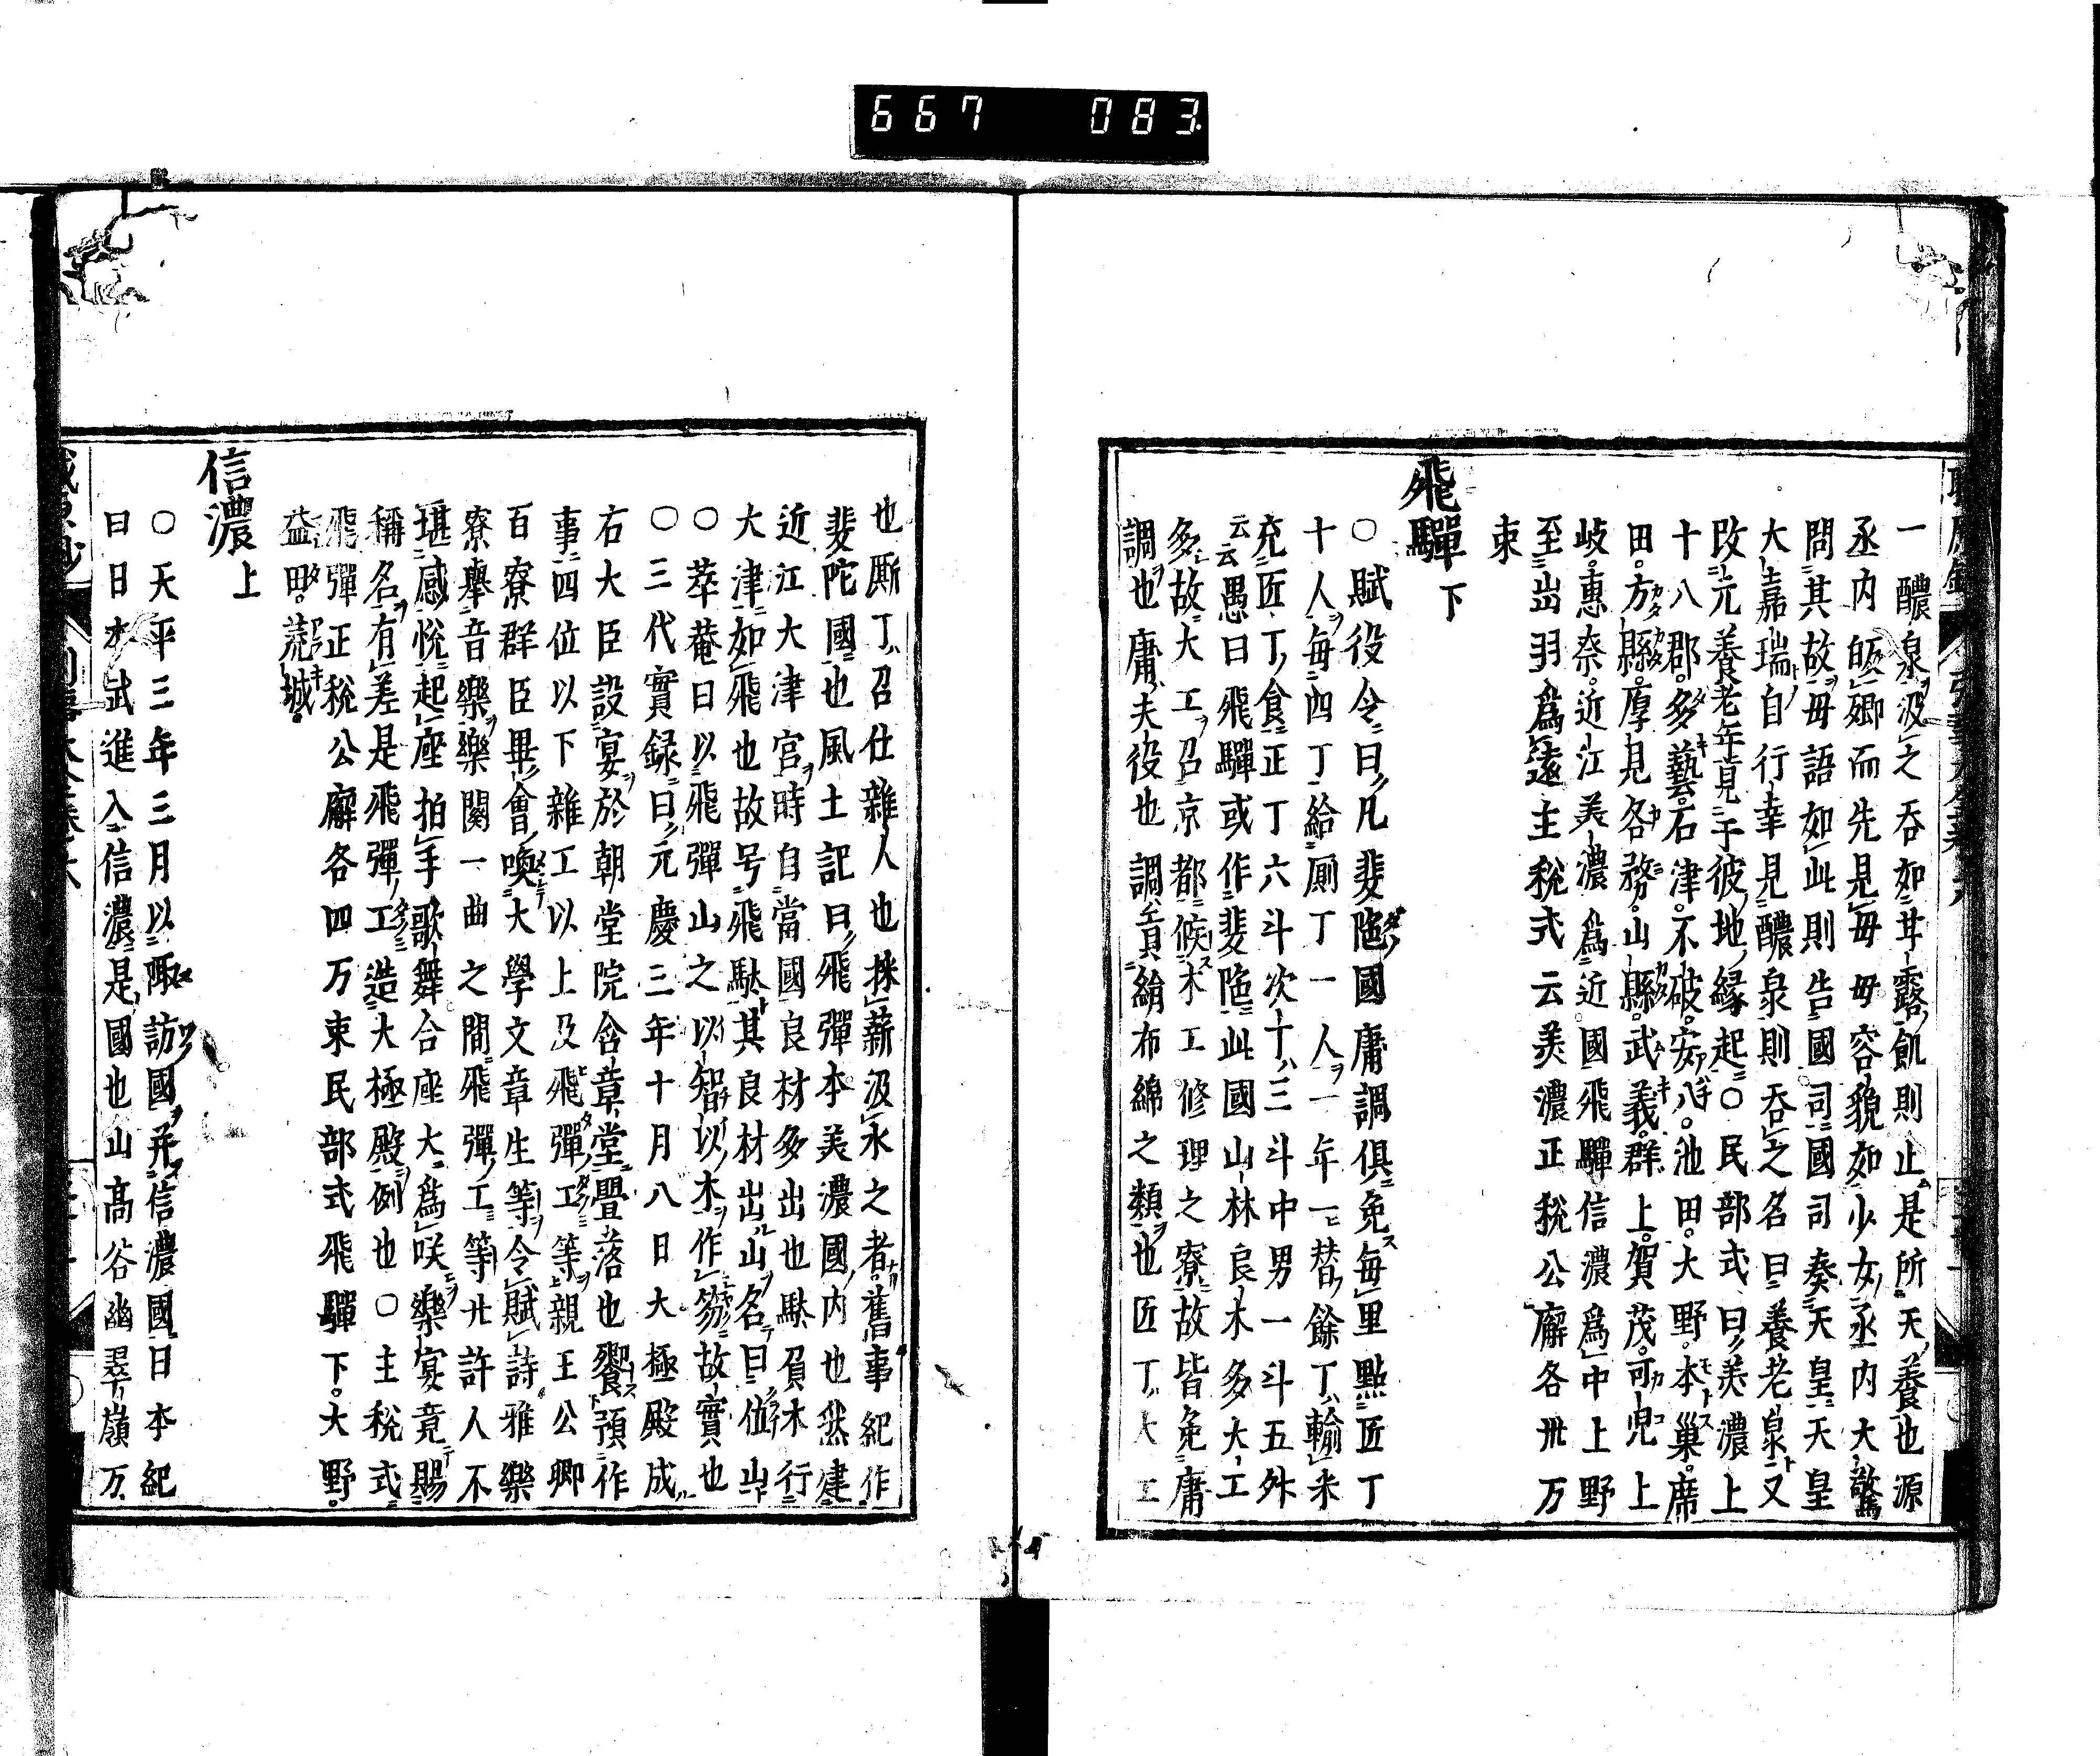 667 083
一醴泉汲之呑如甘露飢則止是所天養也源
丞内皈郷而先見毋毋容貌如少女丞内大驚
問其故毋語如此則告國司國司奏天皇天皇
大嘉瑞自行幸見醴泉則呑之名曰養老泉又
改元養老年見于彼地縁起○民部式曰美濃上
十八郡多藝石津不破安八池田大野本巢席
田方縣厚見各務山縣武義群上賀茂可兒上
岐惠奈近江美濃爲近國飛驒信濃爲中上野
至出羽爲遠主税式云美濃正税公廨各卅万
束
飛驒下
○賦役令曰凡斐陁國庸調俱免毎里點匠丁
十人毎四丁給厠丁一人一年一替餘丁輸米
充匠丁食正丁六斗次丁三斗中男一斗五舛
云云愚曰飛驒或作斐陁此國山林良木多大工
多故大工召京都候木工修理之寮故皆免庸
調也庸夫役也調貢絹布綿之類也匠丁大工
也厮丁召仕雜人也採薪汲水之者舊事紀作
斐陀國也風土記曰飛彈本美濃國内也然建
近江大津宮時自當國良材多出也駄負木行
大津如飛也故号飛駄其良材出山名曰位山
○萃菴曰以飛彈山之以智以木作笏故實也
○三代實録曰元慶三年十月八日大極殿成
右大臣設宴於朝堂院含章堂疊落也饗預作
事四位以下雜工以上及飛彈工等親王公卿
百寮群臣畢會喚大學文章生等令賦詩雅樂
寮擧音樂樂闋一曲之間飛彈工等廿許人不
堪感悅起座拍手歌舞合座大爲咲樂宴竟賜
稱名有差是飛彈工造大極殿例也○主税式
飛彈正税公廨各四万束民部式飛驒下大野
益田荒城
信濃上
○天平三年三月以陬訪國并信濃國日本紀
曰日本武進入信濃是國也山高谷幽翠嶺万